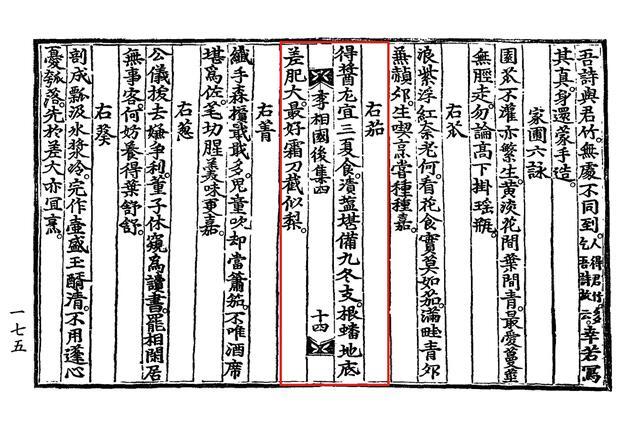 吾詩與君竹。無處不同到。人得君竹。多乞吾詩故云。幸若寫
其真。還蒙手造。
家圃六詠
園瓜不灌亦繁生。黃淡花間葉間青。最愛蔓莖
無脛走。勿論高下掛瑤瓶。
右瓜
浪紫浮紅奈老何。看花食實莫如茄。滿畦青卵
兼赬卵。生喫烹嘗種種嘉。
右茄
得醬尤宜三夏食。漬鹽堪備九冬支。根蟠地底
李相國後集四 十四
差肥大。最好霜刀截似梨。
右菁
纖手森攢戢戢多。兒童吹却當簫笳。不唯酒席
堪爲佐。芼切腥羹味更嘉。
右葱
公儀拔去嫌爭利。董子休窺爲讀書。罷相閑居
無事客。何妨養得葉舒舒。
右葵
剖成瓢汲氷漿冷。完作壺盛玉醑清。不用蓬心
憂瓠落。先於差大亦宜烹。
一七五